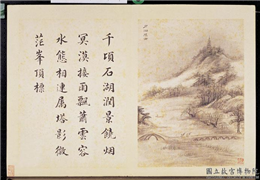 千頃石湖潤景饒烟
冥漠接雨飄蕭雲容
水態相連屬塔影微
茫峯頂標
國立故宮博物院